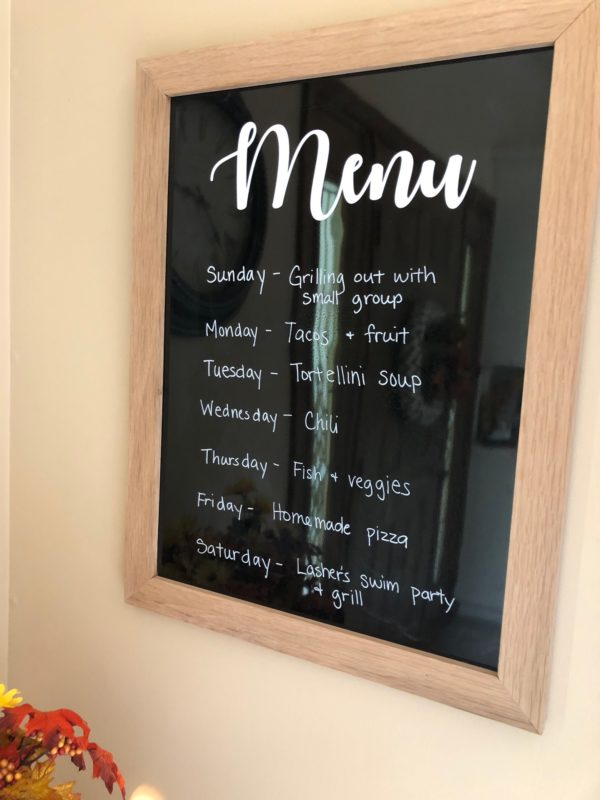 Menu
Sunday - Grilling out with
small group
Monday - Tacos + fruit
Tuesday - Tortellini soup
Wednesday - Chili
Thursday - Fish + veggies
Friday - Homemade pizza
Saturday - Lasher's swim party
+ grill